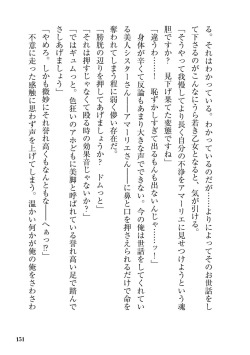 る。それはわかっている。わかっているのだが……よりによってそのお世話をし
てさるのがこんなにうら若き乙女となると、気が引ける。
「そうやって我慢してより多く自分の不浄をアマーリエに見せつけようという魂
胆ですか？　見下げ果てた変態ですね」
「違うわい！　恥ずかしくて出るもんも出ないんじゃ――ッ！」
　身体が辛くて反論もあまり大きな声でできない。今の俺は世話をしてくれてい
る美人シスターさん――アマーリエさんに鼻と口を押さえられるだけで命を
奪われてしまう程に弱く儚い存在だ。
「膀胱の辺りを押してあげましょうか？　ドムっと」
「それは押すじゃなくて殴る時の効果音じゃないか？」
「ではギュムっと。色狂いのアホどもに美脚と呼ばれている誉れ高い足で踏んで
さしあげましょう」
「やめろ。しかも微妙にそれ誉れ高くもなんともな――へぁっ⁉」
　不意に走った感触に思わず声を上げてしまう。温かい何かが俺の俺をさわさわ
151